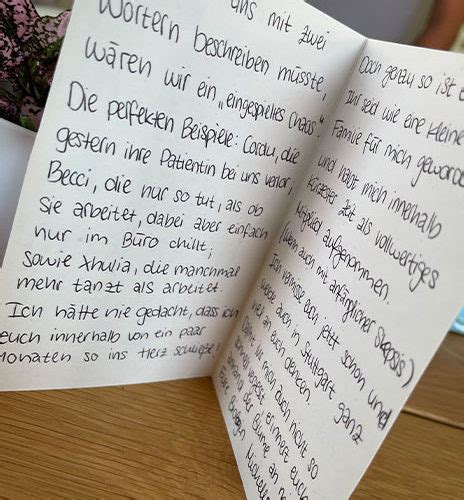 uns mit zwei
Wörtern beschreiben müsste,
wären wir ein „eingespieltes Chaos".
Die perfekten Beispiele: Cordu, die
gestern ihre Patientin bei uns verlor,
Becci, die nur so tut, als ob
sie arbeitet, dabei aber einfach
nur im Büro chillt,
sowie Xhulia, die manchmal
mehr tanzt als arbeitet.
Ich hätte nie gedacht, dass ich
euch innerhalb von ein paar
Monaten so ins Herz schließe!
Doch genau so ist e
Ihr seid wie eine kleine
Familie für mich geworde
und habt mich innerhalb
kürzester Zeit als vollwertiges
Mitglied aufgenommen.
(wenn auch mit anfänglicher Skepsis)
Ich vermisse euch jetzt schon und
werde auch in Stuttgart ganz
viel an euch denken.
ihr mich auch nicht so
schnell vergesst, erinnert euch
der Blume an